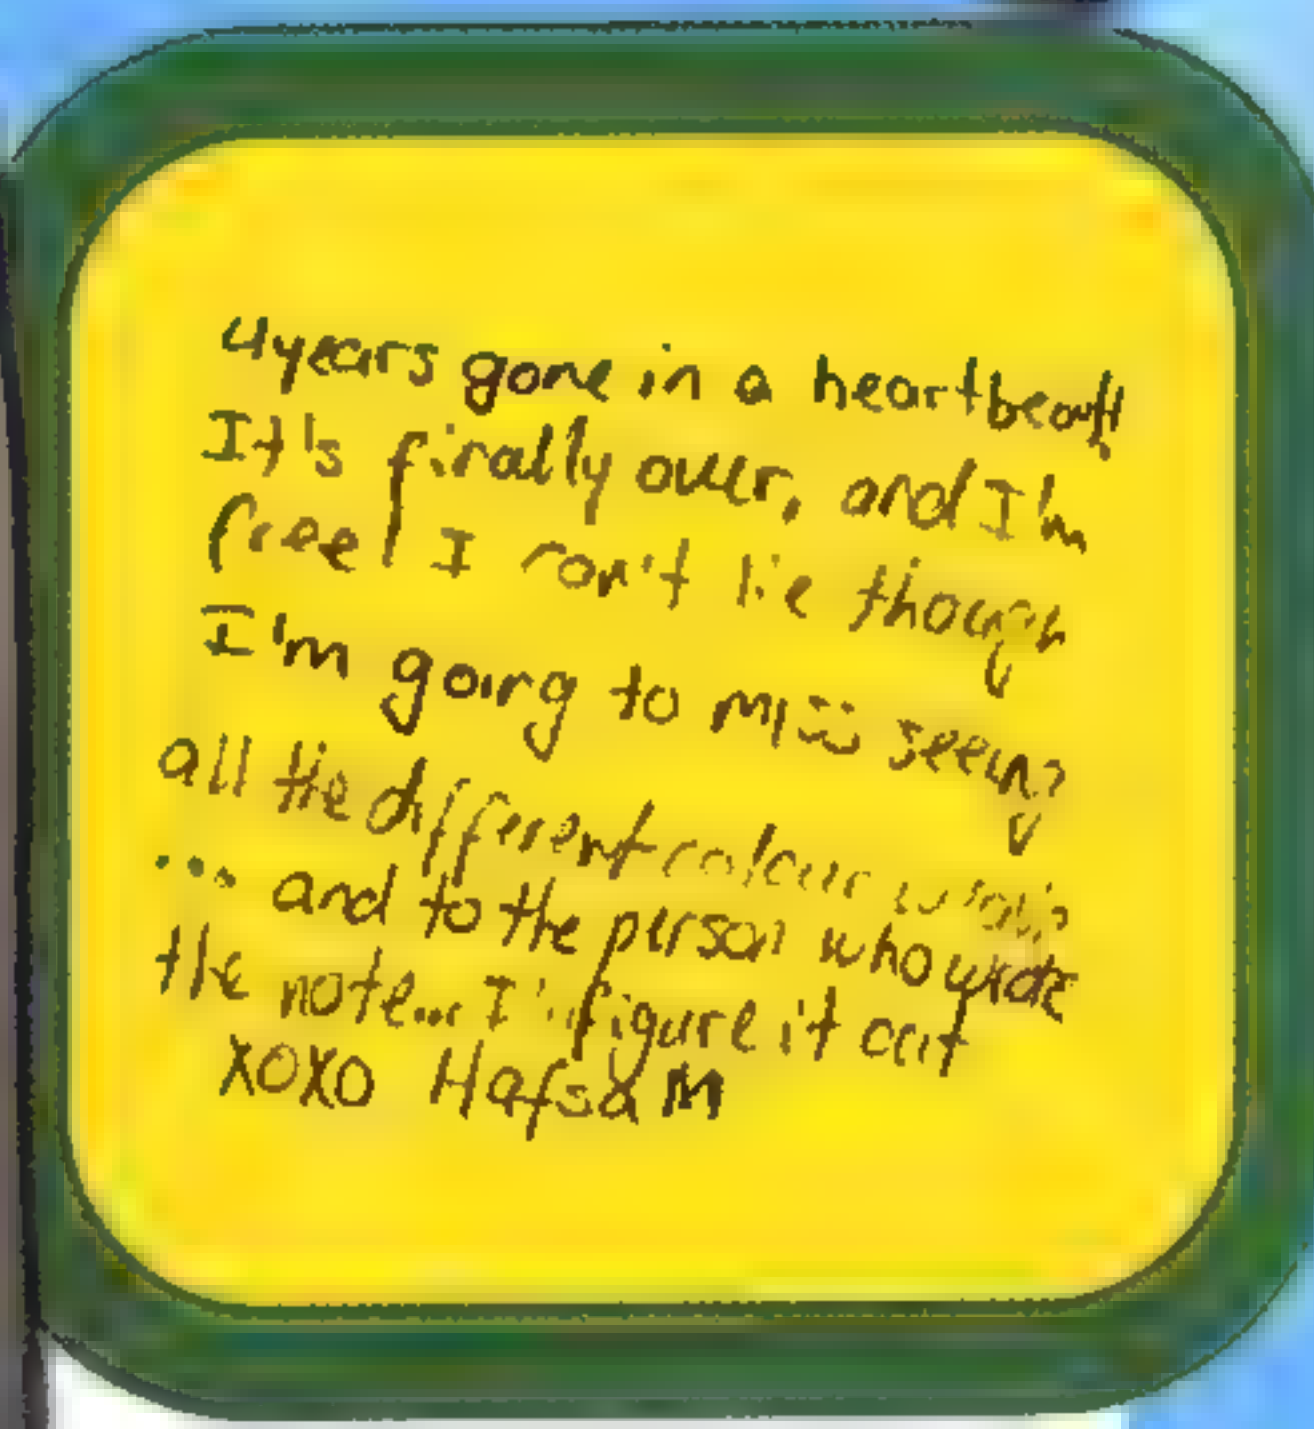 4 years gone in a heartbeat!
It's finally over, and I'm
free! I won't lie though
I'm going to miss seeing
all the different colour
... and to the person who wrote
the note... I'll figure it out
XOXO Hafsa M